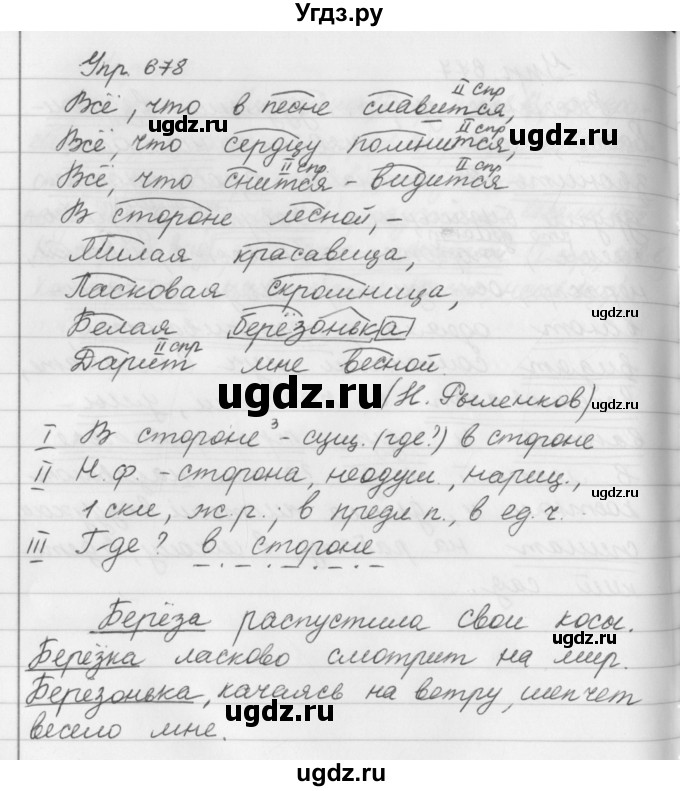 Угдз.ру
Упр. 678
Всё, что в песне славится, II спр
Всё, что сердцу помнится, II спр
Всё, что снится - видится II спр II спр
В стороне лесной, -
Милая красавица,
Ласковая скромница,
Белая берёзонька
Дарит мне весной. II спр
(Н. Рыленков)
I В стороне³ - сущ. (где?) в стороне
II Н.ф. - сторона, неодуш., нариц.,
1 скл., ж.р.; в предл п., в ед. ч.
III Где? в стороне
Берёза распустила свои косы.
Берёзка ласково смотрит на мир.
Березонька, качаясь на ветру, шепчет
весело мне.
ugdz.ru
ugdz.ru
ugdz.ru
ugdz.ru
ugdz.ru
ugdz.ru
ugdz.ru
ugdz.ru
ugdz.ru
ugdz.ru
ugdz.ru
ugdz.ru
ugdz.ru